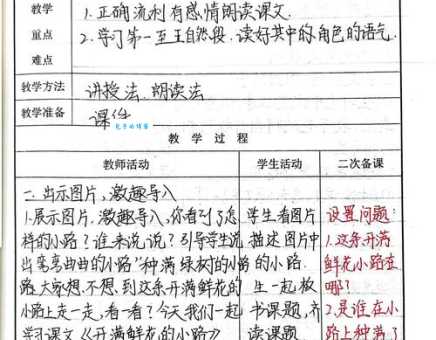 教学
重点
难点
1.正确流利有感情朗读课文.
2.学习第一至五自然段.读好其中的角色的语气.
教学方法
讲授法.朗读法
教学准备
课件
教 学 过 程
教师活动
学生活动
二次备课
一.出示图片,激趣导入
1.展示图片.激趣导入,你看到了怎
样的小路?谁来说说?引导学生说
出"弯弯曲曲的小路"种满绿树的小
路.大家想.不想.到这条开满鲜花的
小路上走一走,看一看?今天我们一起
学习课文《开满鲜花的小路》
学生看图片
描述图片中
的小路.
生一起板
书课题,齐
读课题
设置问题:
1.这条开满
鲜花小路在
哪?
2.是谁在小
路上种满了